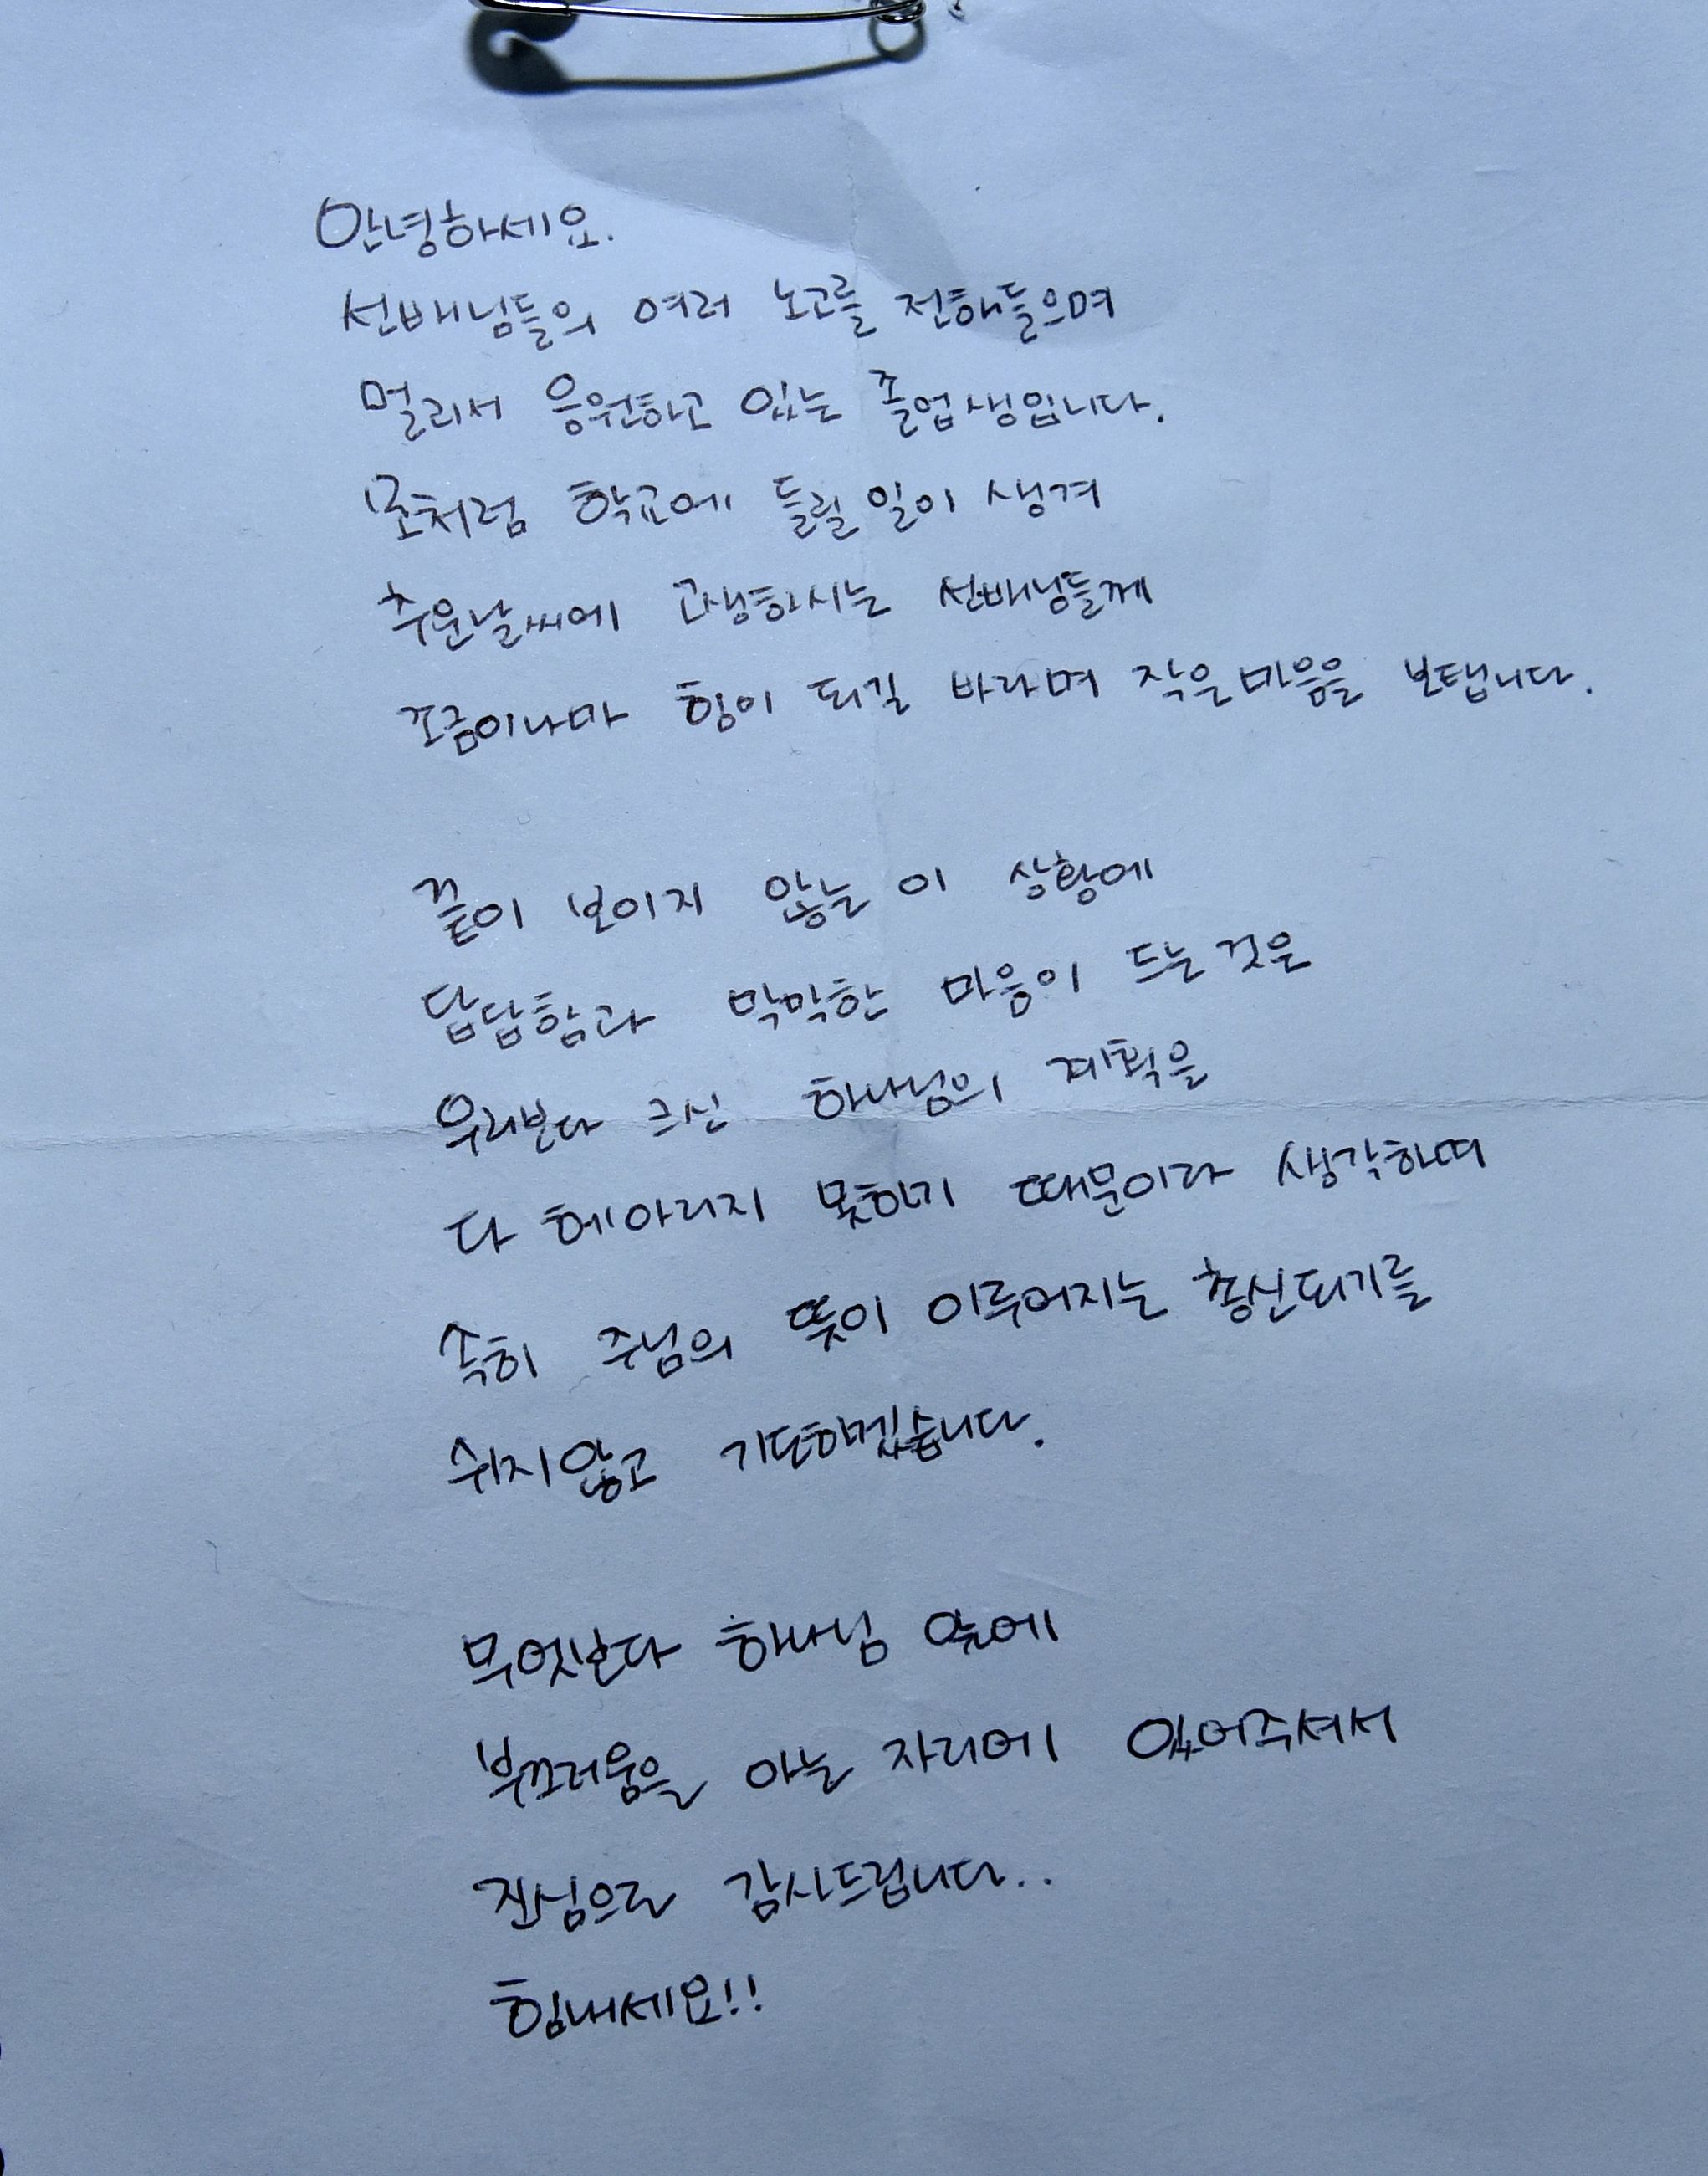 안녕하세요.
선배님들의 여러 노고를 전해들으며
멀리서 응원하고 있는 졸업생입니다.
모처럼 학교에 들릴 일이 생겨
추운날씨에 고생하시는 선배님들께
조금이나마 힘이 되길 바라며 작은마음을 보탭니다.
끝이 보이지 않는 이 상황에
답답함과 막막한 마음이 드는 것은
우리보다 크신 하나님의 계획을
다 헤아리지 못하기 때문이라 생각하며
속히 주님의 뜻이 이루어지는 총신되기를
쉬지않고 기도하겠습니다.
무엇보다 하나님 앞에
부끄러움을 아는 자리에 있어주셔서
진심으로 감사드립니다..
힘내세요!!